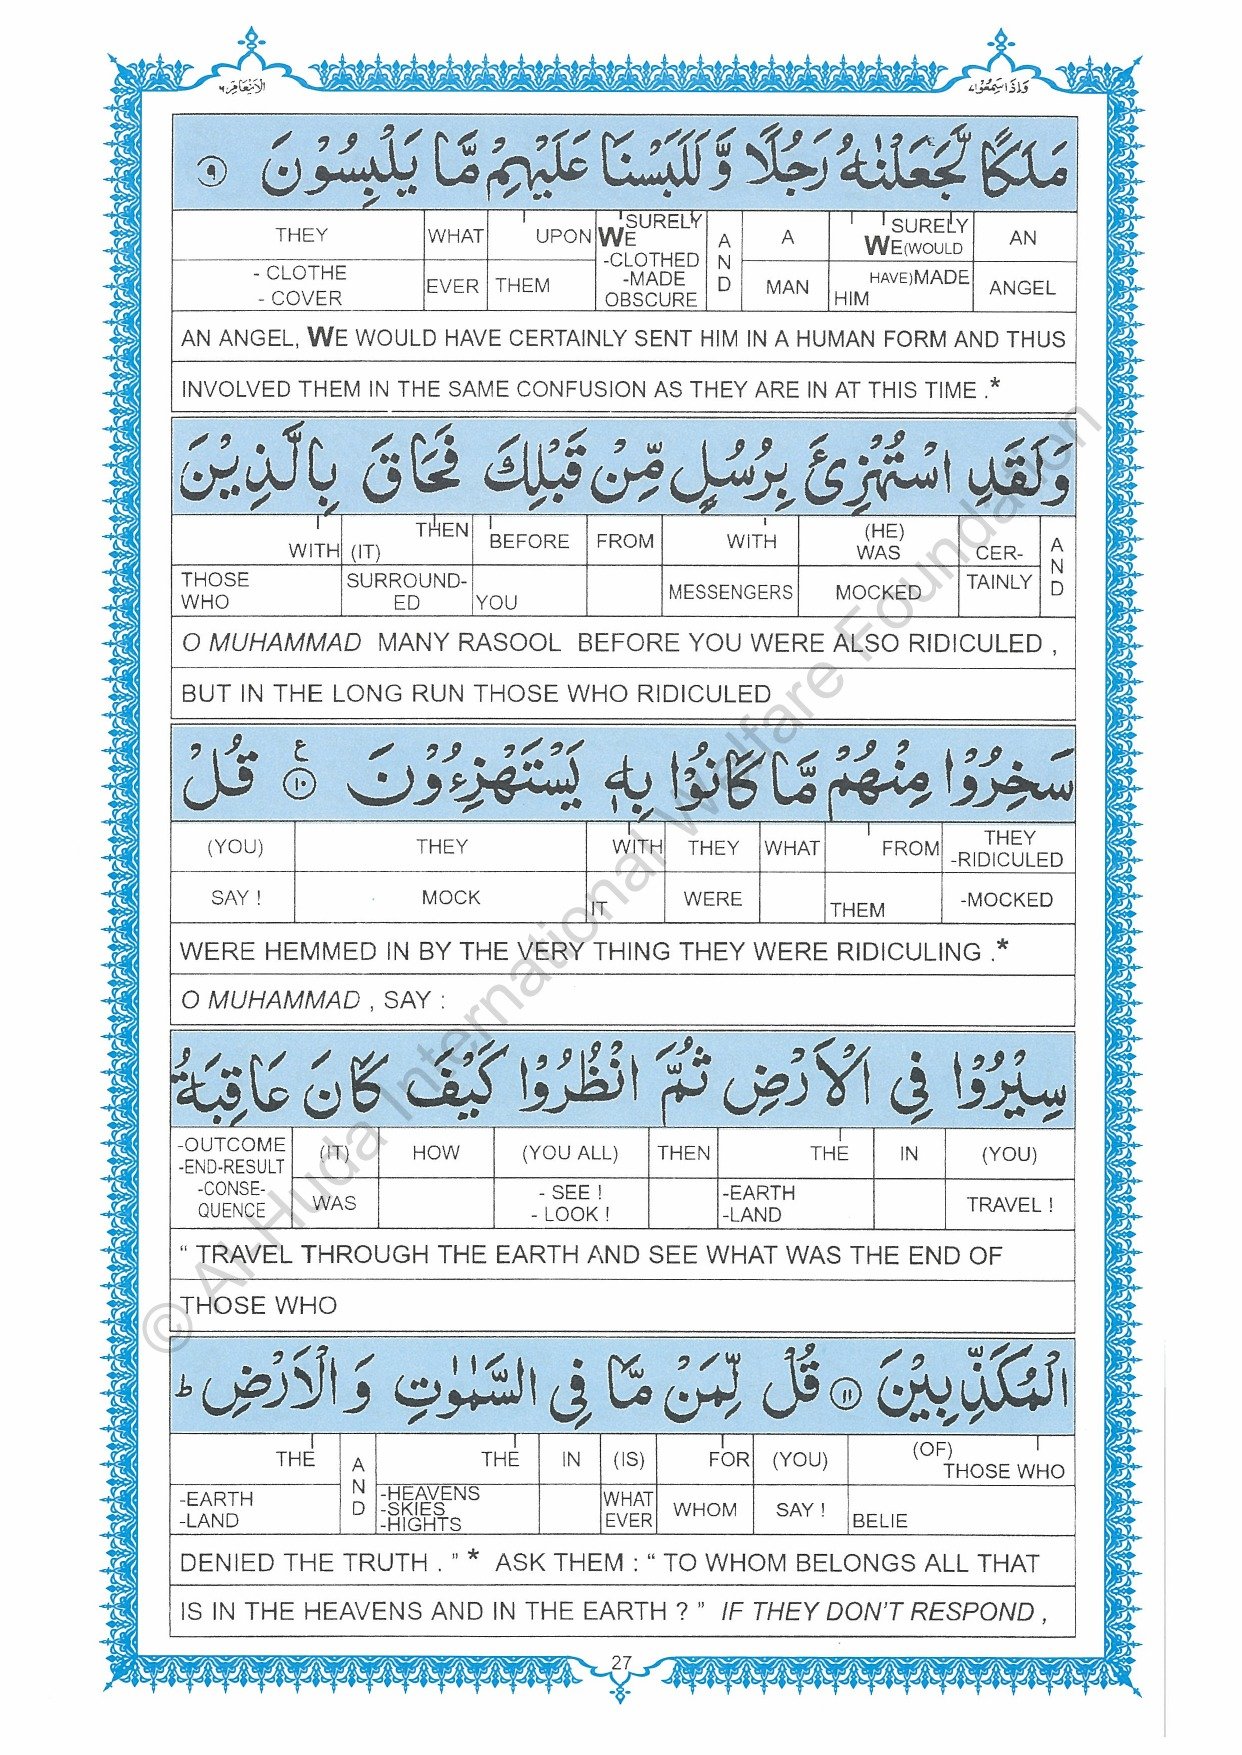 وَاِذَا سَمِعُوْا ٧
الْاَنْعَام ٦
مَلَكًا لَّجَعَلْنٰهُ رَجُلًا وَّلَلَبَسْنَا عَلَيْهِمْ مَّا يَلْبِسُوْنَ ۹
THEY WHAT UPON SURELY WE A N D A SURELY WE(WOULD AN
- CLOTHE - COVER EVER THEM -CLOTHED -MADE OBSCURE MAN HAVE)MADE HIM ANGEL
AN ANGEL, WE WOULD HAVE CERTAINLY SENT HIM IN A HUMAN FORM AND THUS
INVOLVED THEM IN THE SAME CONFUSION AS THEY ARE IN AT THIS TIME .*
وَلَقَدِ اسْتُهْزِئَ بِرُسُلٍ مِّنْ قَبْلِكَ فَحَاقَ بِالَّذِيْنَ
WITH THEN (IT) BEFORE FROM WITH (HE) WAS CER- A N D
THOSE WHO SURROUND- ED YOU MESSENGERS MOCKED TAINLY
O MUHAMMAD MANY RASOOL BEFORE YOU WERE ALSO RIDICULED ,
BUT IN THE LONG RUN THOSE WHO RIDICULED
سَخِرُوْا مِنْهُمْ مَّا كَانُوْا بِهٖ يَسْتَهْزِءُوْنَ ۱۰ ع قُلْ
(YOU) THEY WITH THEY WHAT FROM THEY -RIDICULED
SAY ! MOCK IT WERE THEM -MOCKED
WERE HEMMED IN BY THE VERY THING THEY WERE RIDICULING .*
O MUHAMMAD , SAY :
سِيْرُوْا فِي الْاَرْضِ ثُمَّ انْظُرُوْا كَيْفَ كَانَ عَاقِبَةُ
-OUTCOME -END-RESULT (IT) HOW (YOU ALL) THEN THE IN (YOU)
-CONSE- QUENCE WAS - SEE ! - LOOK ! -EARTH -LAND TRAVEL !
“ TRAVEL THROUGH THE EARTH AND SEE WHAT WAS THE END OF
THOSE WHO
الْمُكَذِّبِيْنَ ۱۱ قُلْ لِّمَنْ مَّا فِي السَّمٰوٰتِ وَ الْاَرْضِ ط
THE A N D THE IN (IS) FOR (YOU) (OF) THOSE WHO
-EARTH -LAND -HEAVENS -SKIES -HIGHTS WHAT EVER WHOM SAY ! BELIE
DENIED THE TRUTH . ” * ASK THEM : “ TO WHOM BELONGS ALL THAT
IS IN THE HEAVENS AND IN THE EARTH ? ” IF THEY DON’T RESPOND ,
27
© Al-Huda International Welfare Foundation